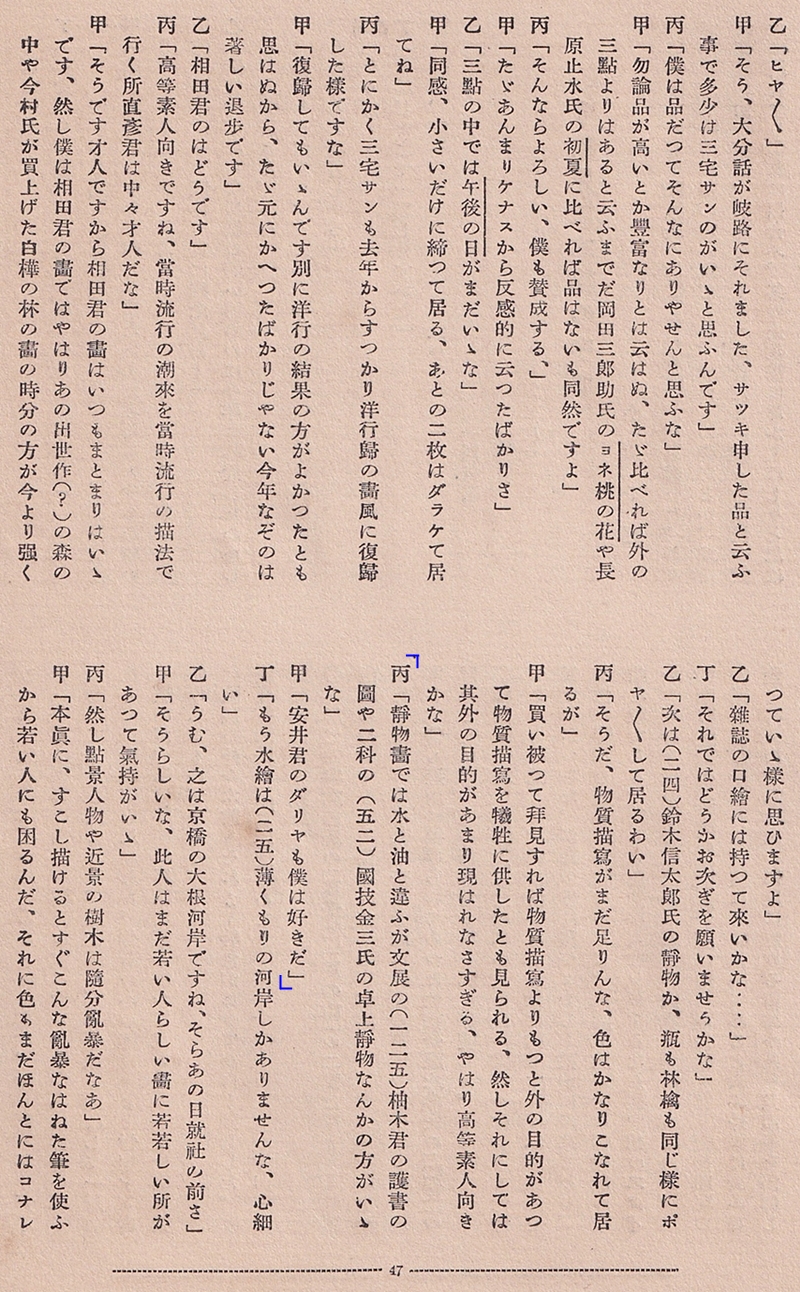 乙「ヒヤ〳〵」
甲「そう、大分話が岐路にそれました、サツキ申した品と云ふ
事で多少は三宅サンのがいゝと思ふんです」
丙「僕は品だつてそんなにありやせんと思ふな」
甲「勿論品が高いとか豐富なりとは云はぬ、たゞ比べれば外の
三點よりはあると云ふまでだ岡田三郞助氏のヨネ桃の花や長
原止水氏の初夏に比べれば品はないも同然ですよ」
丙「そんならよろしい、僕も賛成する、」
甲「たゞあんまりケナスから反感的に云つたばかりさ」
乙「三點の中では午後の日がまだいゝな」
甲「同感、小さいだけに締つて居る、あとの二枚はダラケて居
てね」
丙「とにかく三宅サンも去年からすつかり洋行歸の畵風に復歸
した樣ですな」
甲「復歸してもいゝんです別に洋行の結果の方がよかつたとも
思はぬから、たゞ元にかへつたばかりじやない今年なぞのは
著しい退歩です」
乙「相田君のはどうです」
丙「高等素人向きですね、當時流行の潮來を當時流行の描法で
行く所直彥君は中々才人だな」
甲「そうです才人ですから相田君の畵はいつもまとまりはいゝ
です、然し僕は相田君の畵ではやはりあの出世作(?)の森の
中や今村氏が買上げた白樺の林の畵の時分の方が今より强く
つていゝ樣に思ひますよ」
乙「雜誌の口繪には持つて來いかな‥‥」
丁「それではどうかお次ぎを願いませうかな」
乙「次は(二四)鈴木信太郞氏の靜物か、瓶も林檎も同じ樣にボ
ヤ〳〵して居るわい」
丙「そうだ、物質描寫がまだ足りんな、色はかなりこなれて居
るが」
甲「買い被つて拜見すれば物質描寫よりもつと外の目的があつ
て物質描寫を犧牲に供したとも見られる、然しそれにしては
其外の目的があまり現はれなさすぎる、やはり高等素人向き
かな」
丙「靜物畵では水と油と違ふが文展の(一二五)柚木君の護書の
圖や二科の(五二)國技金三氏の卓上靜物なんかの方がいゝ
な」
甲「安井君のダリヤも僕は好きだ」
丁「もう水繪は(一五)薄くもりの河岸しかありませんな、心細
い」
乙「うむ、之は京橋の大根河岸ですね、そらあの日就社の前さ」
甲「そうらしいな、此人はまだ若い人らしい畵に若若しい所が
あつて氣持がいゝ」
丙「然し點景人物や近景の樹木は隨分亂暴だなあ」
甲「本眞に、すこし描けるとすぐこんな亂暴なはねた筆を使ふ
から若い人にも困るんだ、それに色もまだほんとにはコナレ
47